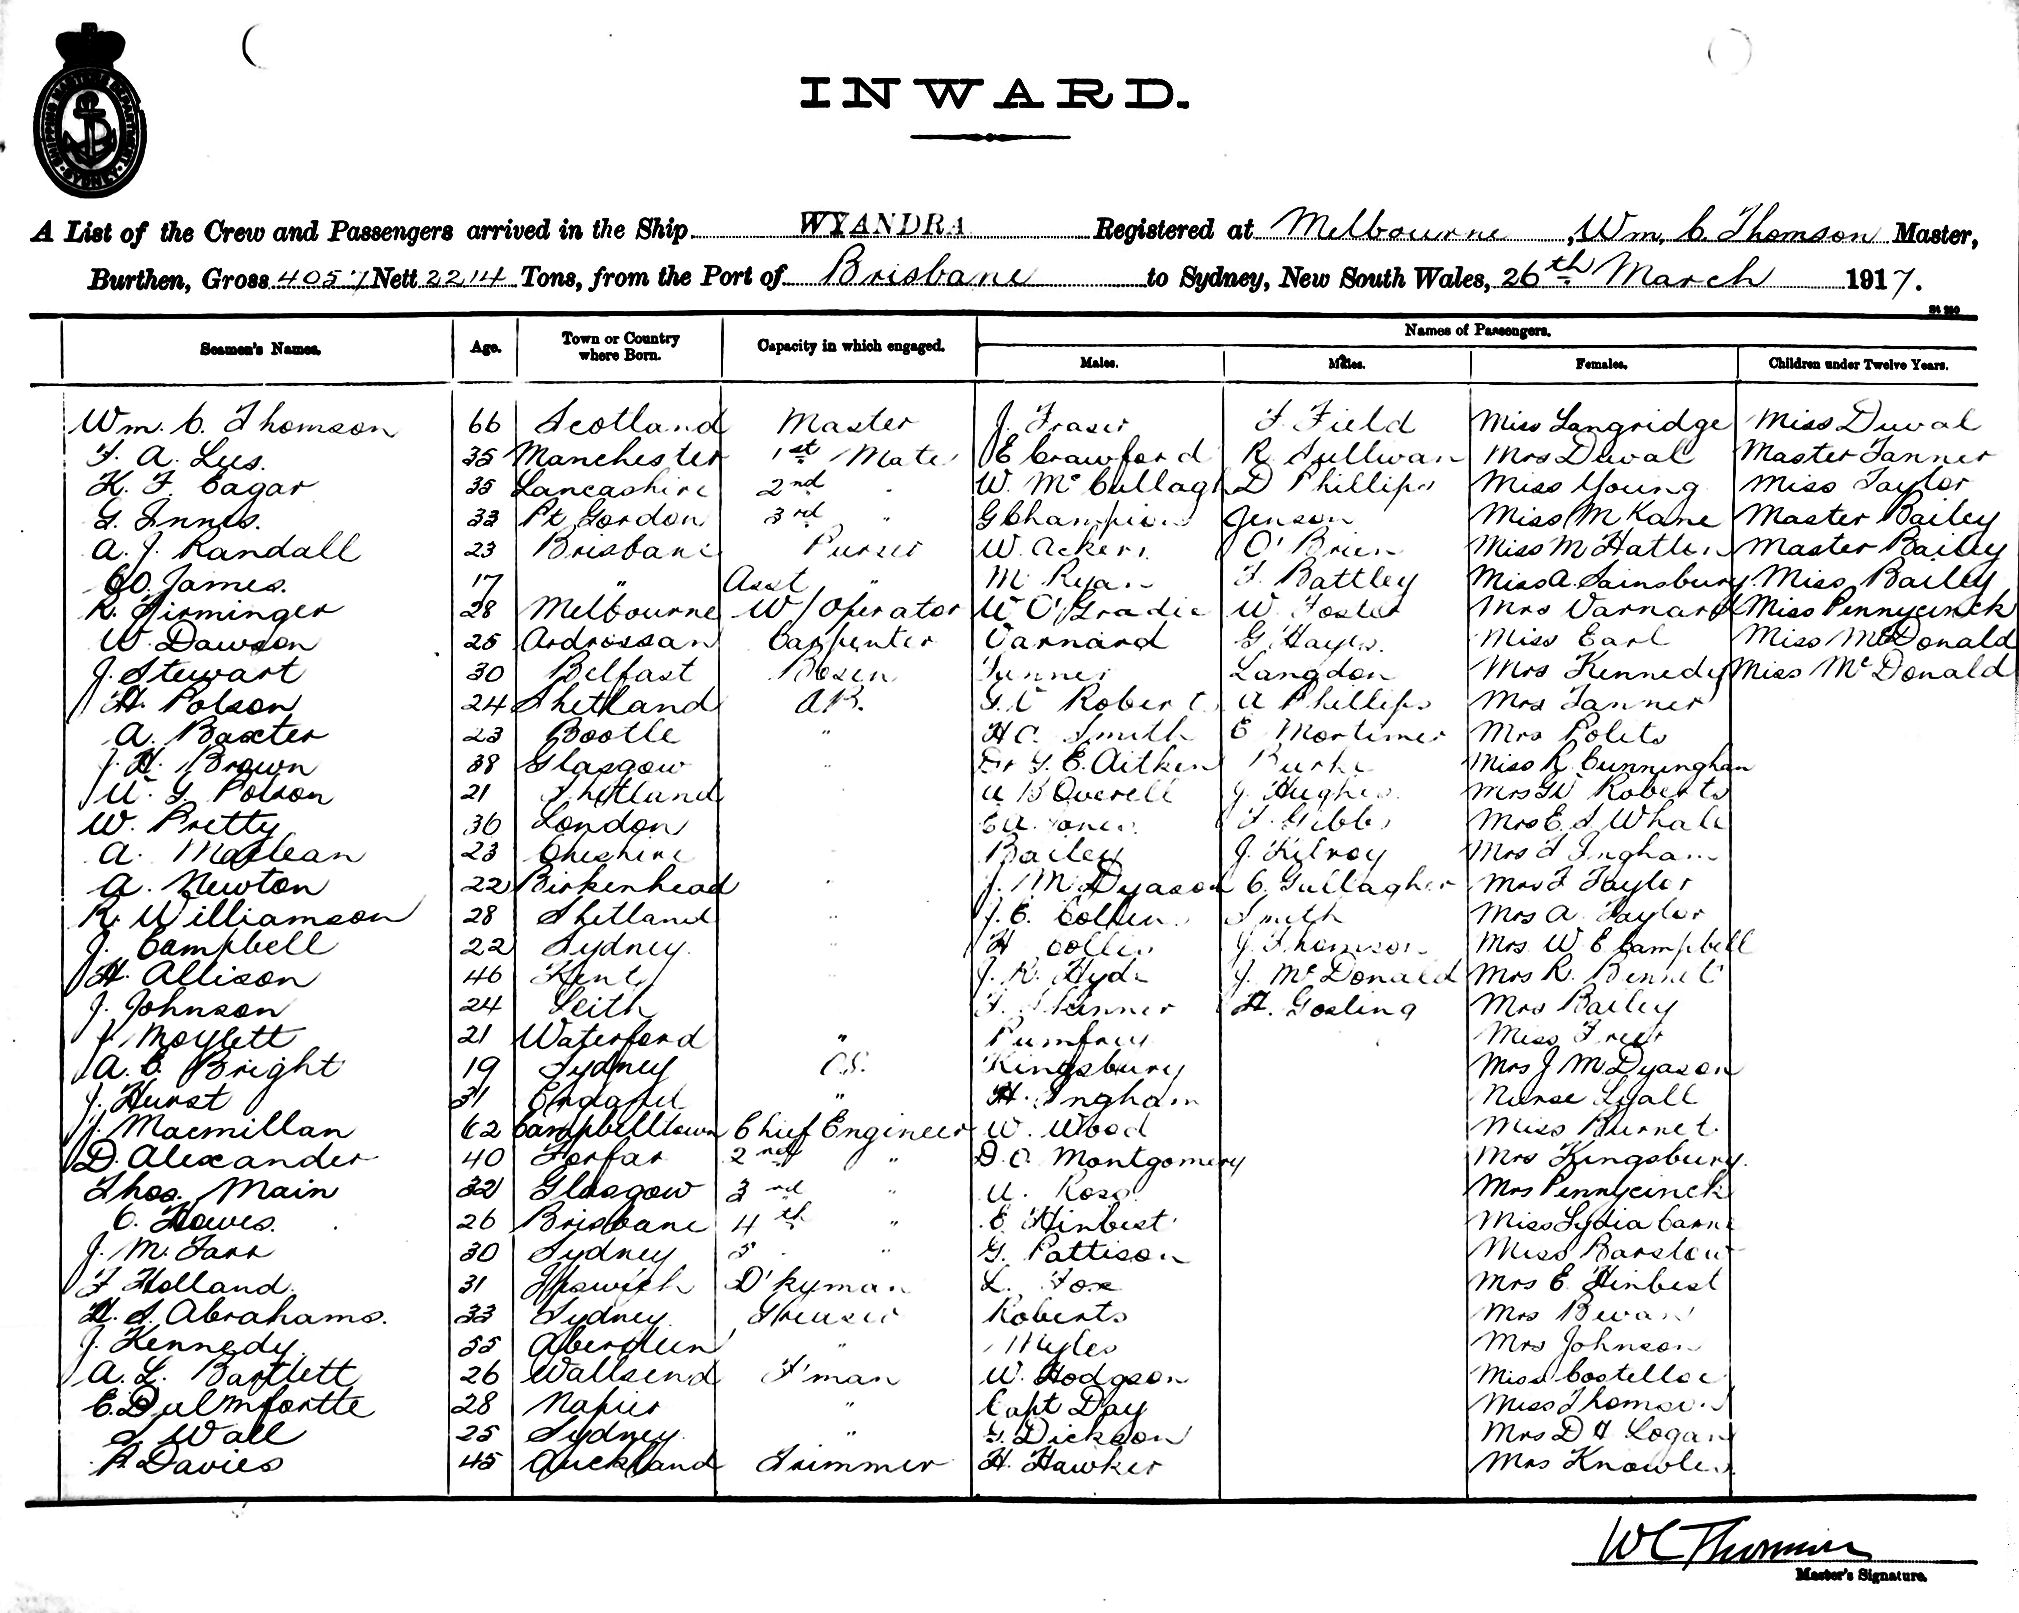 SHIPPING MASTER'S DEPARTMENT
SYDNEY
INWARD.
A List of the Crew and Passengers arrived in the Ship WYANDRA Registered at Melbourne, Wm. C. Thomson Master,
Burthen, Gross 4057 Nett 2214 Tons, from the Port of Brisbane to Sydney, New South Wales, 26th March 1917.
Names of Passengers.
Seamen's Names. Age. Town or Country where Born. Capacity in which engaged. Males. Males. Females. Children under Twelve Years.
Wm. C. Thomson 66 Scotland Master J. Fraser F. Field Miss Langridge Miss Duval
F. A. 35 Manchester 1st Mate E Crawford R. Sullivan Mrs Duval Master Tanner
K. F. Cagar 35 Lancashire 2nd W. McCullagh D Phillips Miss Young Miss Taylor
G. Innes. 33 Pt Gordon 3rd " G Champion Jenson Miss M Kane Master Bailey
A. J. Randall 23 Brisbane Purser W. Ackers O'Brien Miss M Hatten Master Bailey
O. James. 17 " Asst " M Ryan F. Battley Miss A. Sainsbury. Miss Bailey
R. Firminger 28 Melbourne W/Operator W O'Gradie W. Foster Mrs Varnard Miss Pennycinck
W. Dawson 25 Ardrossan Carpenter Varnard G. Hayes. Miss Earl Miss McDonald
J. Stewart 30 Belfast Bosen Tanner Langdon Mrs Kennedy Miss McDonald
H. Polson 24 Shetland A.B. G. V Roberts A Phillips Mrs Tanner
A. Baxter 23 Bootle " H C. Smith E Mortimer Mrs Polits
J. H. Brown 38 Glasgow " Dr G. E. Aitken Burke Miss R. Cunningham
W. G. Polson 21 Shetland A B Overell J. Hughes. Mrs G V Roberts
W. Pretty 36 London E A. Jones. F. Gibbs Mrs E. S Whale
A. Maclean 23 Cheshire Bailey J. Kilroy Mrs F Ingham
A. Newton 22 Birkenhead J. M. Dyason C. Gullagher Mrs F Taylor
R. Williamson 28 Shetland " J. C. Collin Smith Mrs A Taylor
J. Campbell 22 Sydney. H Collin J. Thomson Mrs. W E Campbell
H. Allison 46 Kent J. R. Hyde J. McDonald Mrs R. Bennet
J. Johnson 24 Leith F. Skinner H. Gosling Mrs Bailey
J. Moylett 21 Waterford " Pumfrey Miss Freer
A. C. Bright 19 Sydney O.S. Kingsbury Mrs J M Dyason
J. Hurst 31 England " H. Ingham Nurse Lyall
J. Macmillan 62 Campbelltown Chief Engineer W. Wood Miss Burnet
D. Alexander 40 Forfar 2nd " D. C. Montgomery Mrs Kingsbury.
Thos. Main 32 Glasgow 3rd " A. Ross. Mrs Pennycinck
C. Hawes. 26 Brisbane 4th " E Hinbest Miss Lydia Carne
J. M. Farr 30 Sydney 5 " G. Pattison Miss Barstow
F Holland. 31 Ipswich D'kyman L. Fox Mrs E Hinbest
H. S. Abrahams. 33 Sydney Greaser Roberts Mrs Bevan
J. Kennedy 55 Aberdeen " Myles Mrs Johnson
A. L. Bartlett 26 Wallsend F'man W. Hodgson Miss Costelloe
E. Dulmfortte 28 Napier " Capt Day Miss Thomson
S. Wall 25 Sydney " G. Dickson Mrs D H Logan
R Davies 45 Auckland Trimmer H. Hawker Mrs Knowles.
W C Thomson
Master's Signature.